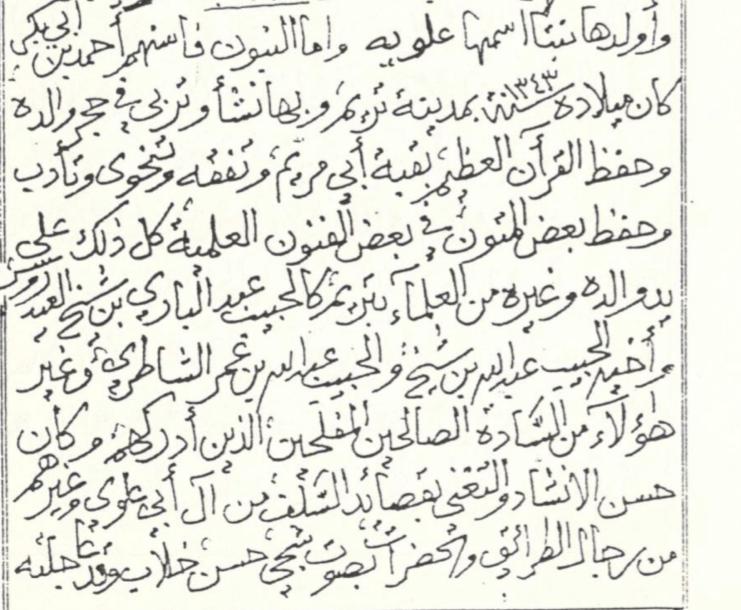 وأولدها بنتا اسمها علويه واما البنون فاسنهم أحمد بن أبي بكر
كان ميلاده سنة ١٣٤٣ بمدينة تريم وبها نشأ وتربى في حجر والده
وحفظ القرآن العظيم بقبة أبي مريم، وتفقه وتنحوى وتأدب
وحفظ بعض المتون في بعض الفنون العلمية كل ذلك على
يد والده وغيره من العلمآء بتريم كالحبيب عبد الباري بن شيخ العيدروس
وأخيه الحبيب عبد الله بن شيخ، والحبيب عبد الله بن عمر الشاطري، وغير
هؤلآء من السادة الصالحين المفلحين الذين أدركهم، وكان
حسن الانشاد والتغني بقصائد السلف من آل أبي علوي وغيرهم
من رجال الطرائق والحضرات بصوت شجي حسن خلاب وقد